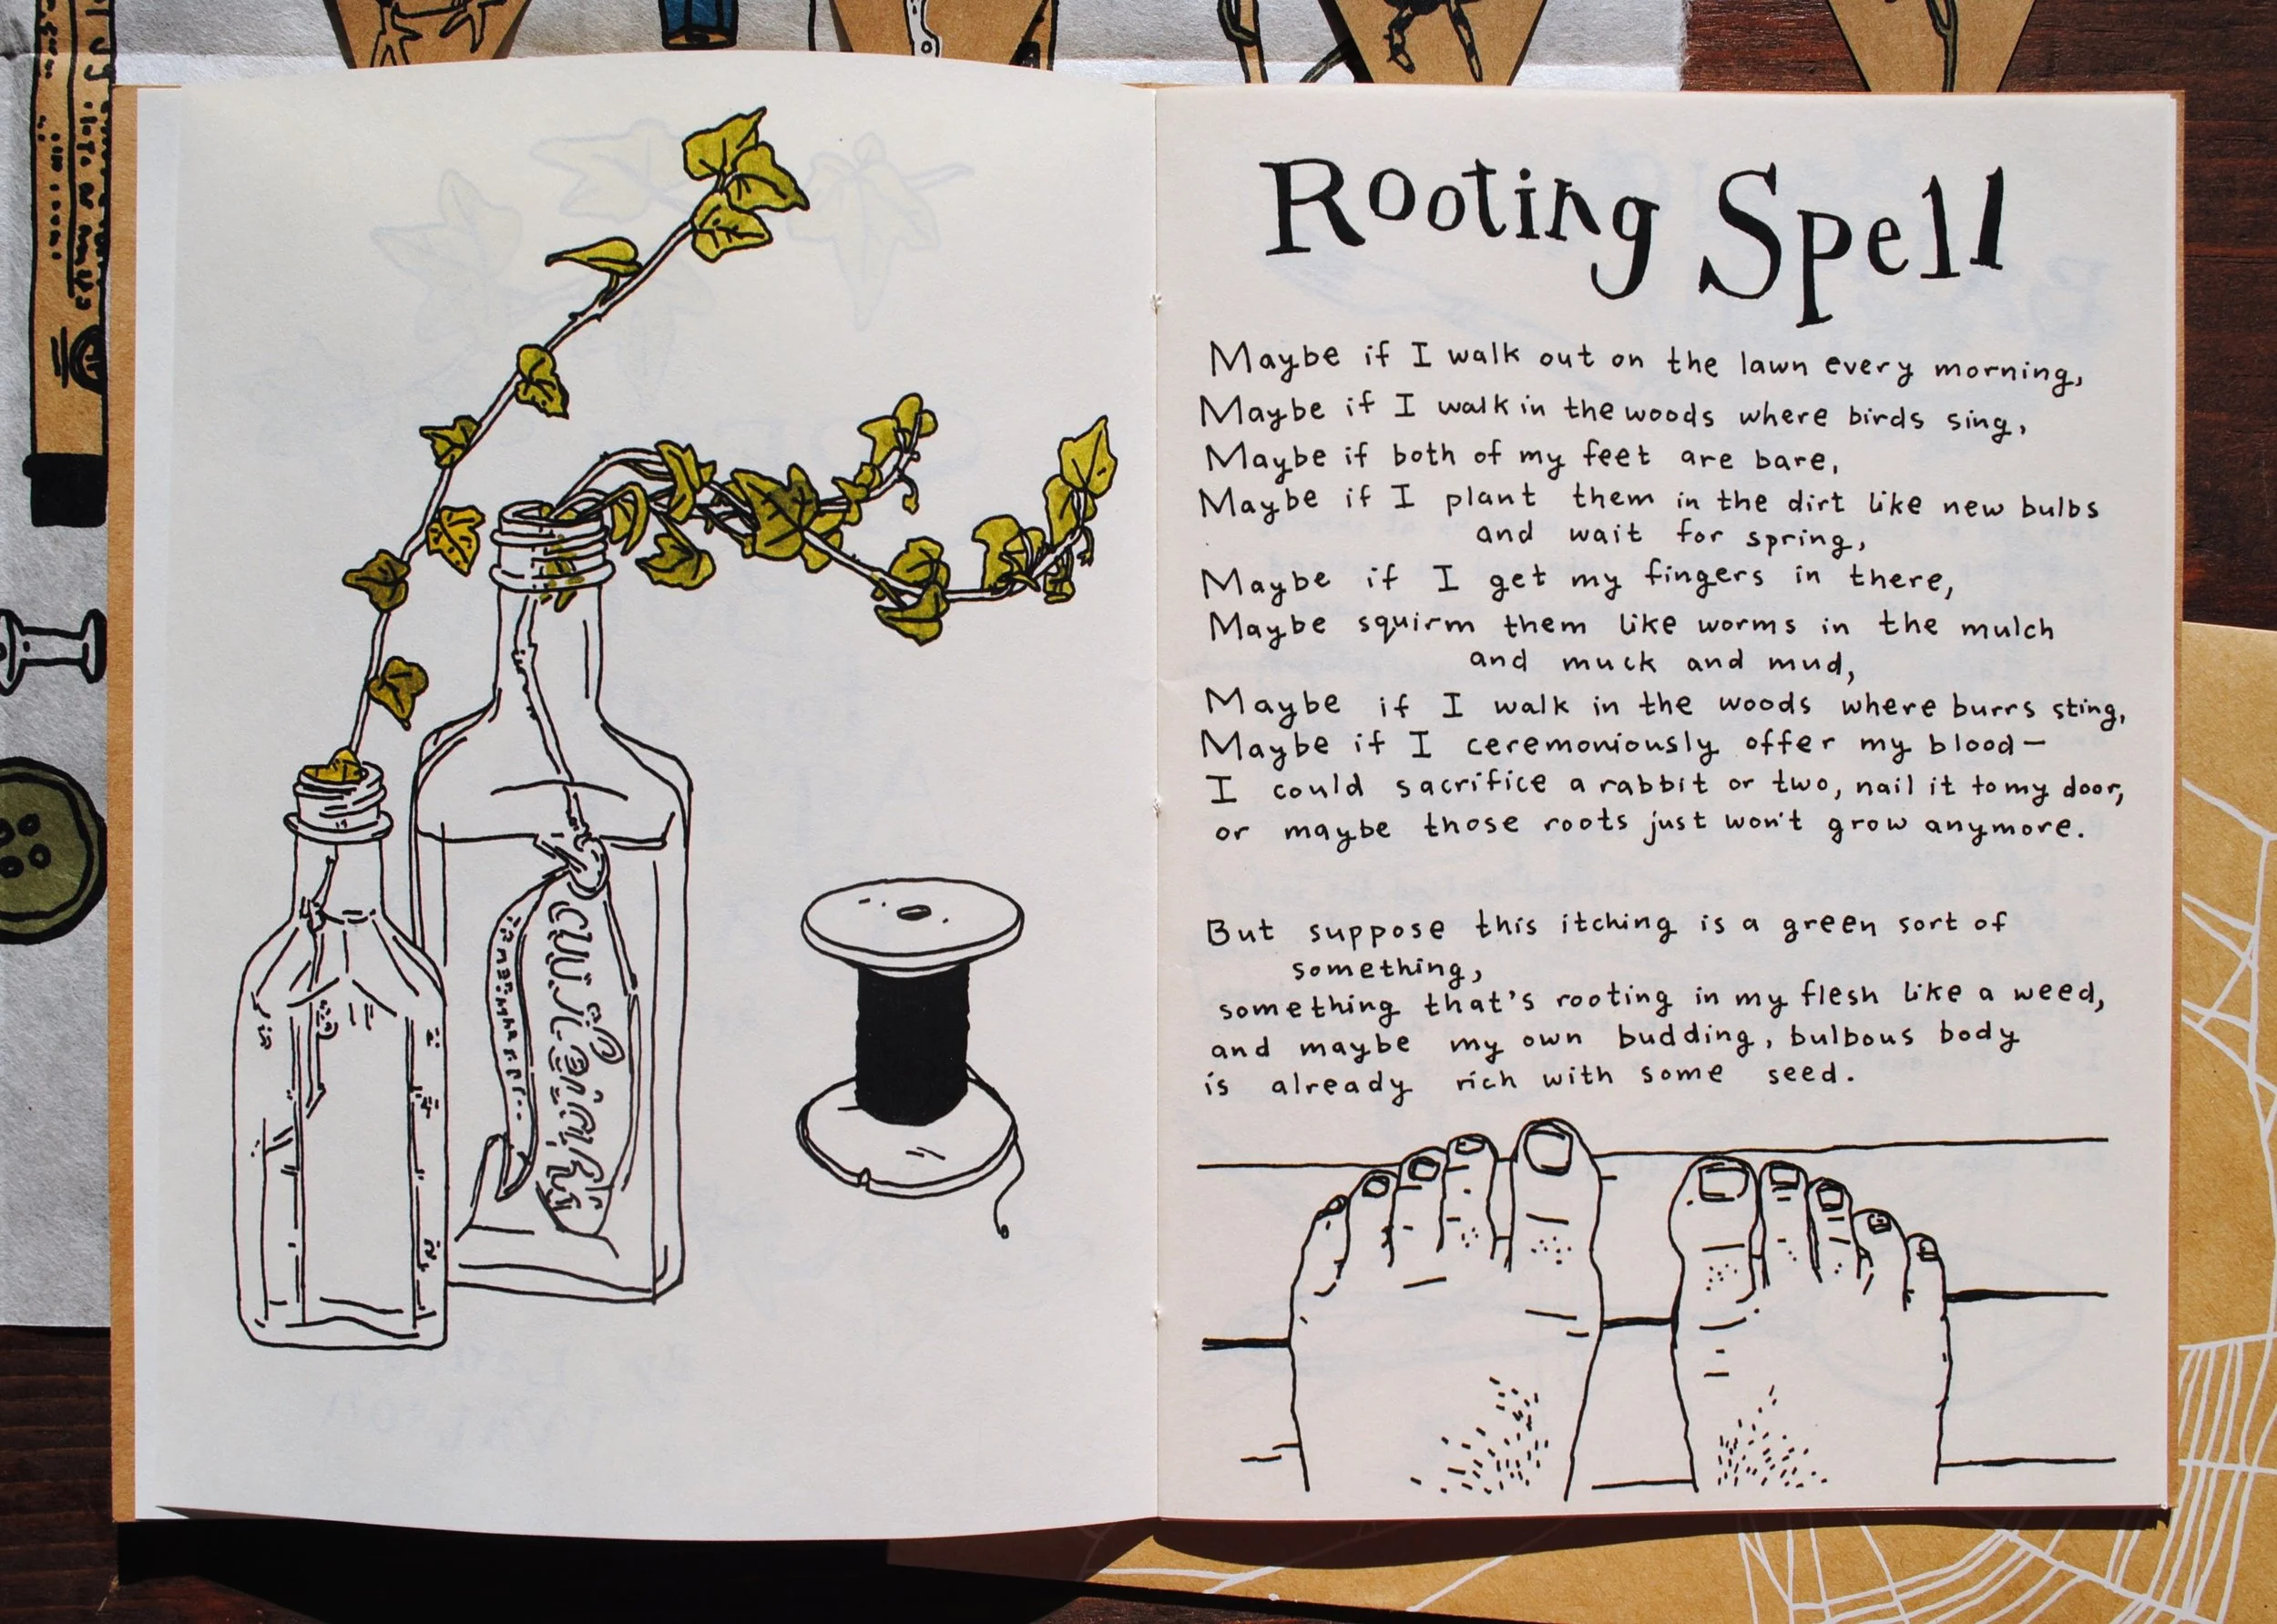 Rooting Spell
Maybe if I walk out on the lawn every morning,
Maybe if I walk in the woods where birds sing,
Maybe if both of my feet are bare,
Maybe if I plant them in the dirt like new bulbs
and wait for spring,
Maybe if I get my fingers in there,
Maybe squirm them like worms in the mulch
and muck and mud,
Maybe if I walk in the woods where burrs sting,
Maybe if I ceremoniously offer my blood—
I could sacrifice a rabbit or two, nail it to my door,
or maybe those roots just won't grow anymore.
But suppose this itching is a green sort of
something,
something that's rooting in my flesh like a weed,
and maybe my own budding, bulbous body
is already rich with some seed.